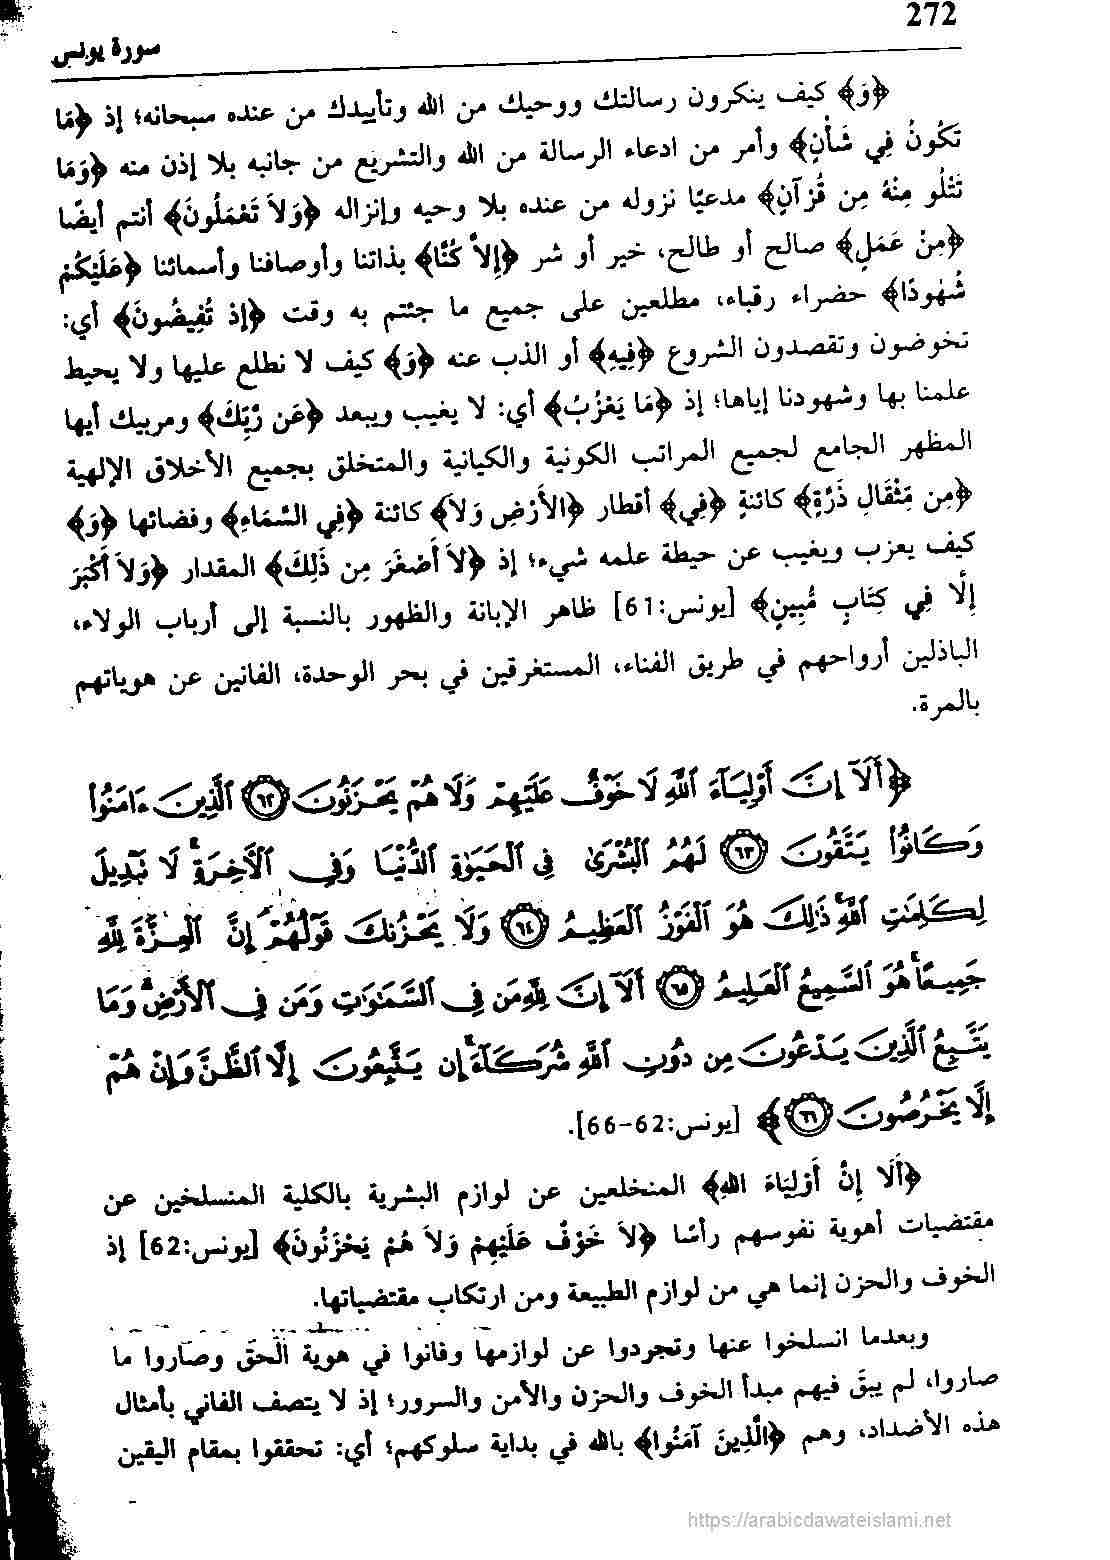 272
سورة يونس
﴿وَ﴾ كيف ينكرون رسالتك ووحيك من الله وتأييدك من عنده سبحانه؛ إذ ﴿مَا
تَكُونُ فِي شَأْنٍ﴾ وأمر من ادعاء الرسالة من الله والتشريع من جانبه بلا إذن منه ﴿وَمَا
تَتْلُو مِنْهُ مِن قُرْآنٍ﴾ مدعيًا نزوله من عنده بلا وحيه وإنزاله ﴿وَلاَ تَعْمَلُونَ﴾ أنتم أيضًا
﴿مِنْ عَمَلٍ﴾ صالح أو طالح، خير أو شر ﴿إِلاَّ كُنَّا﴾ بذاتنا وأوصافنا وأسمائنا ﴿عَلَيْكُمْ
شُهُودًا﴾ حضراء رقباء، مطلعين على جميع ما جئتم به وقت ﴿إِذ تُفِيضُونَ﴾ أي:
تخوضون وتقصدون الشروع ﴿فِيهِ﴾ أو الذب عنه ﴿وَ﴾ كيف لا نطلع عليها ولا يحيط
علمنا بها وشهودنا إياها؛ إذ ﴿مَا يَعْزُبُ﴾ أي: لا يغيب ويبعد ﴿عَن رَّبِّكَ﴾ ومربيك أيها
المظهر الجامع لجميع المراتب الكونية والكيانية والمتخلق بجميع الأخلاق الإلهية
﴿مِن مِّثْقَالِ ذَرَّةٍ﴾ كائنةٍ ﴿فِي﴾ أقطار ﴿الأَرْضِ وَلاَ﴾ كائنة ﴿فِي السَّمَاءِ﴾ وفضائها ﴿وَ﴾
كيف يعزب ويغيب عن حيطة علمه شيء؛ إذ ﴿لاَ أَصْغَرَ مِن ذَلِكَ﴾ المقدار ﴿وَلاَ أَكْبَرَ
إِلَّا فِي كِتَابٍ مُّبِينٍ﴾ [يونس:61] ظاهر الإبانة والظهور بالنسبة إلى أرباب الولاء،
الباذلين أرواحهم في طريق الفناء، المستغرقين في بحر الوحدة، الفانين عن هوياتهم
بالمرة.
﴿أَلَآ إِنَّ أَوْلِيَآءَ ٱللَّهِ لَا خَوْفٌ عَلَيْهِمْ وَلَا هُمْ يَحْزَنُونَ ٦٢ ٱلَّذِينَ ءَامَنُوا۟
وَكَانُوا۟ يَتَّقُونَ ٦٣ لَهُمُ ٱلْبُشْرَىٰ فِى ٱلْحَيَوٰةِ ٱلدُّنْيَا وَفِى ٱلْءَاخِرَةِ ۚ لَا تَبْدِيلَ
لِكَلِمَٰتِ ٱللَّهِ ۚ ذَٰلِكَ هُوَ ٱلْفَوْزُ ٱلْعَظِيمُ ٦٤ وَلَا يَحْزُنكَ قَوْلُهُمْ ۘ إِنَّ ٱلْعِزَّةَ لِلَّهِ
جَمِيعًا ۚ هُوَ ٱلسَّمِيعُ ٱلْعَلِيمُ ٦٥ أَلَآ إِنَّ لِلَّهِ مَن فِى ٱلسَّمَٰوَٰتِ وَمَن فِى ٱلْأَرْضِ ۗ وَمَا
يَتَّبِعُ ٱلَّذِينَ يَدْعُونَ مِن دُونِ ٱللَّهِ شُرَكَآءَ ۚ إِن يَتَّبِعُونَ إِلَّا ٱلظَّنَّ وَإِنْ هُمْ
إِلَّا يَخْرُصُونَ ٦٦﴾ [يونس:62-66].
﴿أَلَا إِنَّ أَوْلِيَاءَ اللهِ﴾ المنخلعين عن لوازم البشرية بالكلية المنسلخين عن
مقتضيات أهوية نفوسهم رأسًا ﴿لاَ خَوْفٌ عَلَيْهِمْ وَلاَ هُمْ يَحْزَنُونَ﴾ [يونس:62] إذ
الخوف والحزن إنما هي من لوازم الطبيعة ومن ارتكاب مقتضياتها.
وبعدما انسلخوا عنها وتجردوا عن لوازمها وفانوا في هوية الحق وصاروا ما
صاروا، لم يبقَ فيهم مبدأ الخوف والحزن والأمن والسرور؛ إذ لا يتصف الفاني بأمثال
هذه الأضداد، وهم ﴿الَّذِينَ آمَنُوا﴾ بالله في بداية سلوكهم؛ أي: تحققوا بمقام اليقين
https://arabicdawateislami.net